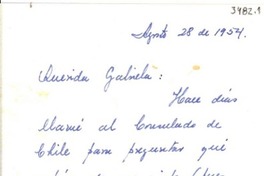 3482.1
Agosto 28 de 1954.
Querida Gabriela:
Hace días
llamé al Consulado de
Chile para preguntar que